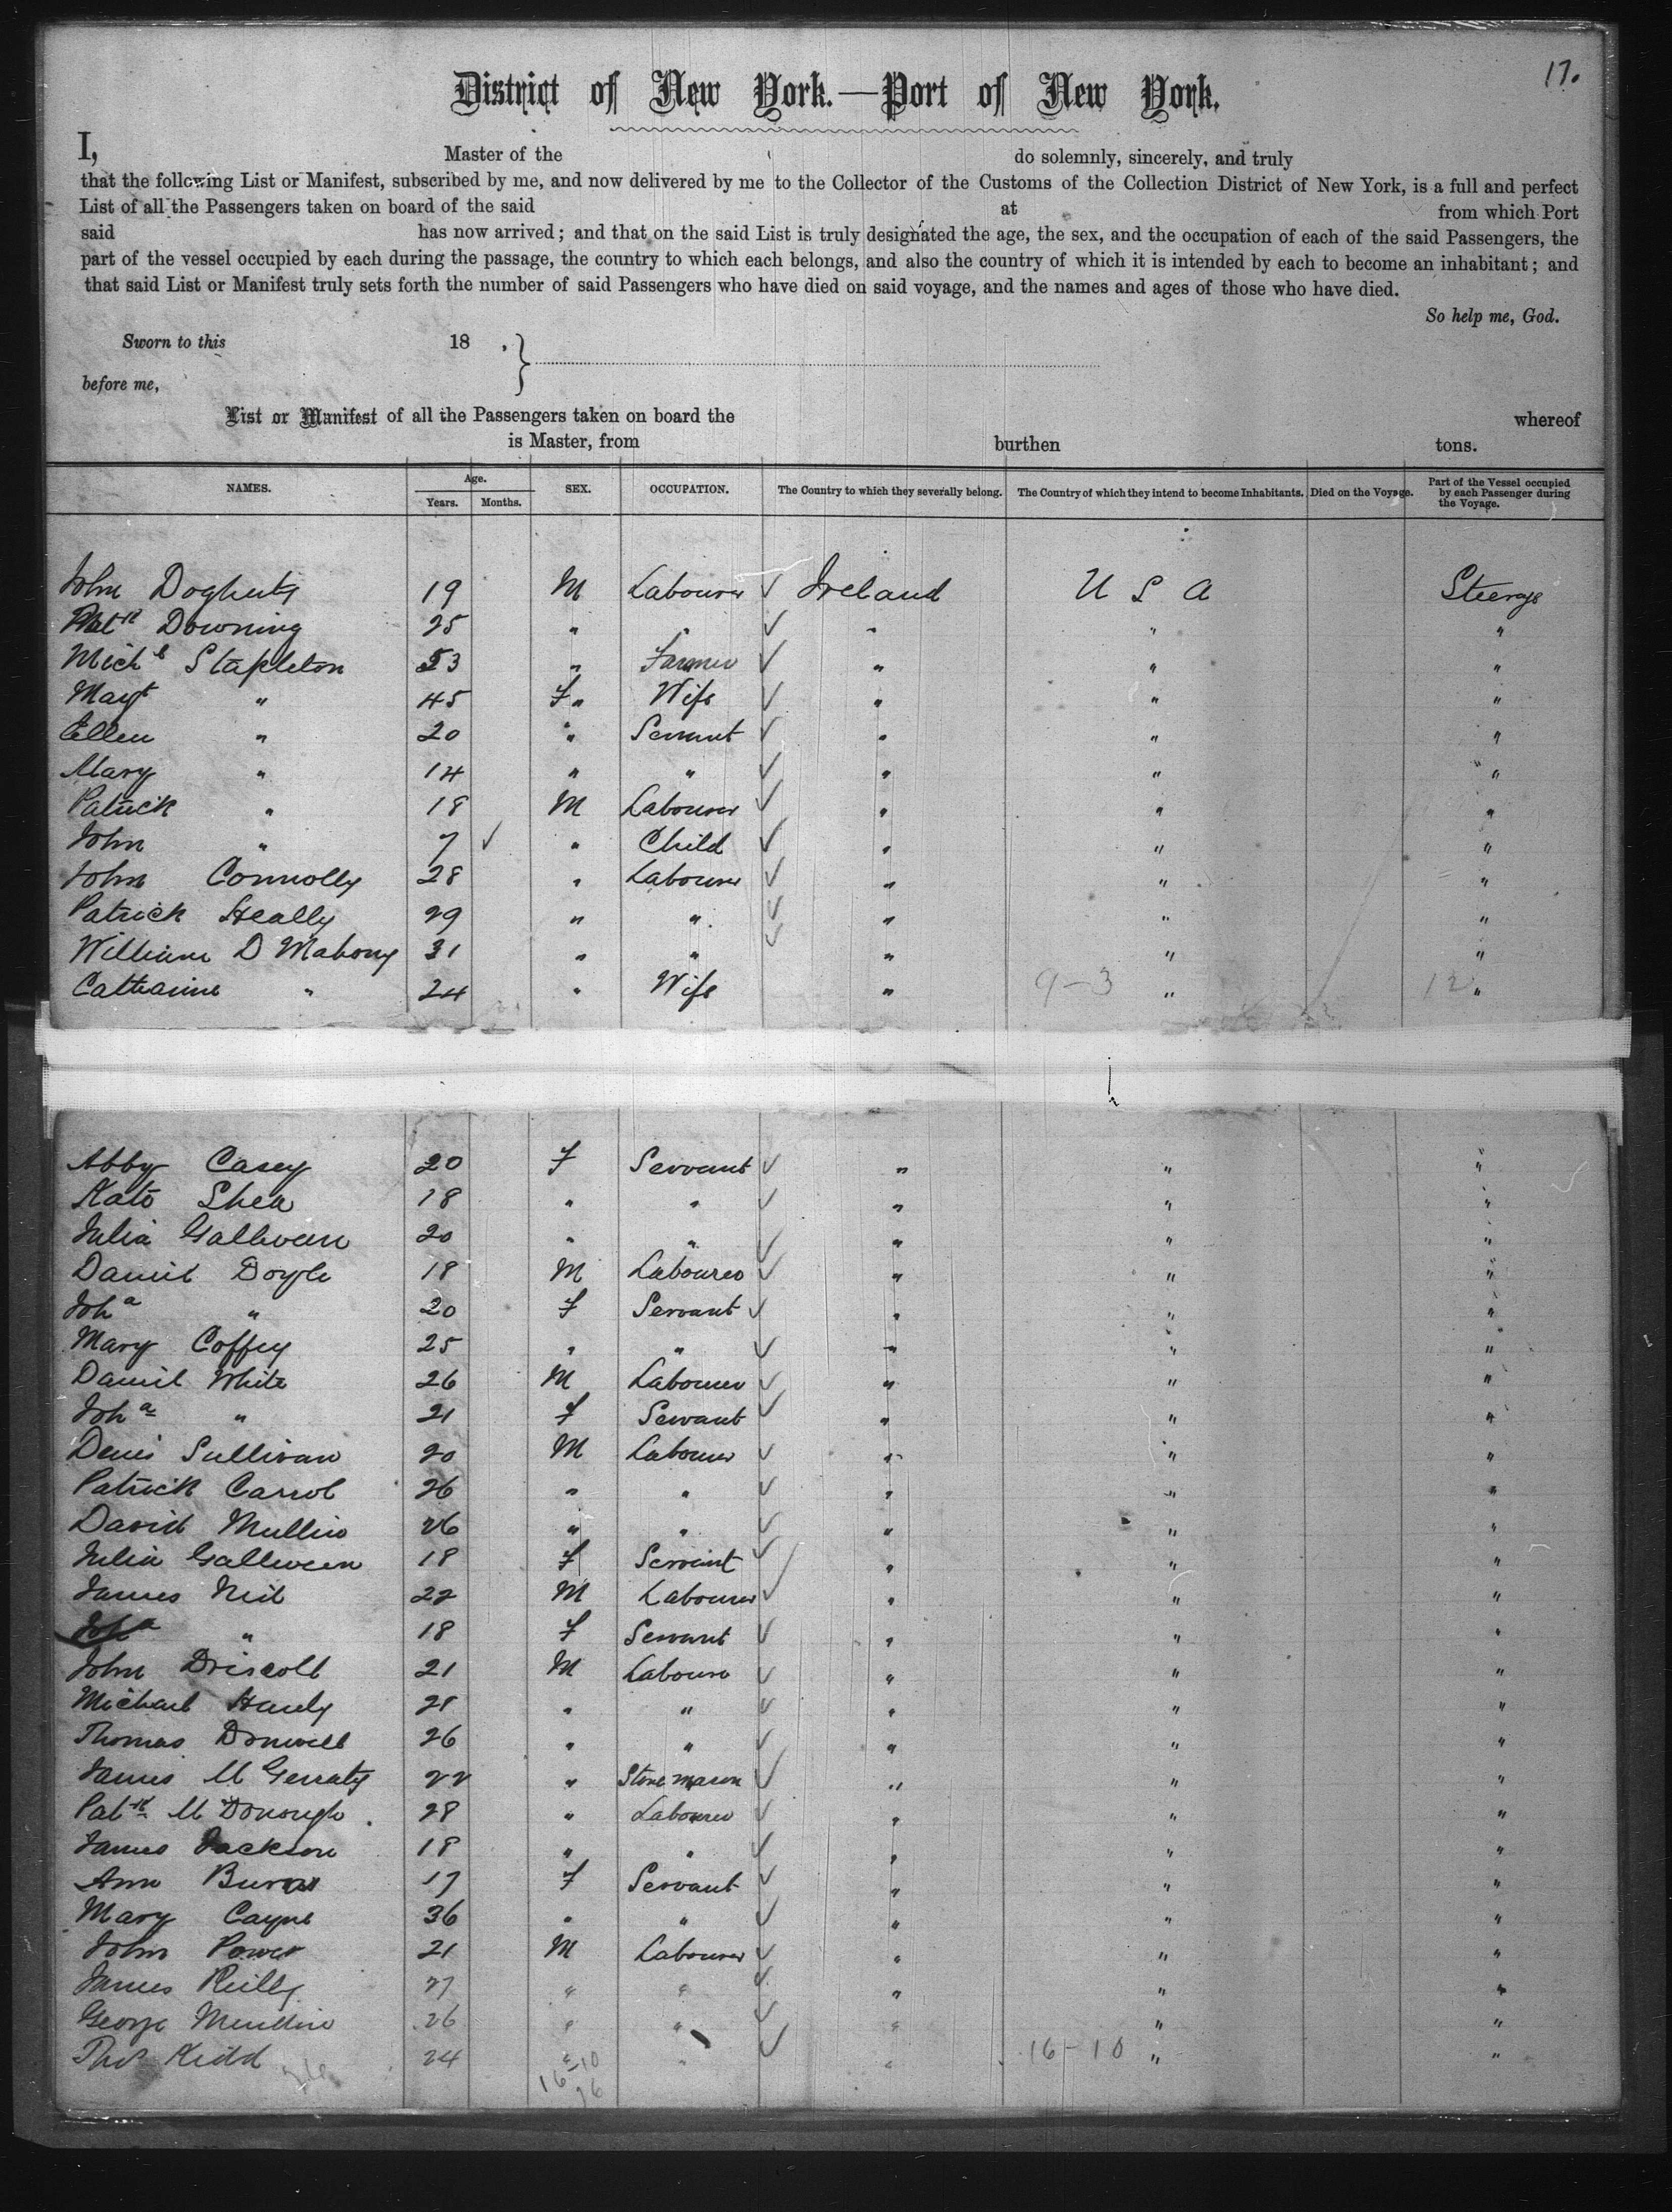 17.
District of New York.—Port of New York.
I, Master of the do solemnly, sincerely, and truly
that the following List or Manifest, subscribed by me, and now delivered by me to the Collector of the Customs of the Collection District of New York, is a full and perfect
List of all the Passengers taken on board of the said at from which Port
said has now arrived; and that on the said List is truly designated the age, the sex, and the occupation of each of the said Passengers, the
part of the vessel occupied by each during the passage, the country to which each belongs, and also the country of which it is intended by each to become an inhabitant; and
that said List or Manifest truly sets forth the number of said Passengers who have died on said voyage, and the names and ages of those who have died.
So help me, God.
Sworn to this 18 .
before me,
List or Manifest of all the Passengers taken on board the whereof
is Master, from burthen tons.
NAMES. Age. Years. Months. SEX. OCCUPATION. The Country to which they severally belong. The Country of which they intend to become Inhabitants. Died on the Voyage. Part of the Vessel occupied by each Passenger during the Voyage.
John Dogherty 19 M Labourer ✓ Ireland U S A Steerage
Patk Downing 25 " " ✓ " " "
Michl Stapleton 53 " Farmer ✓ " " "
Margt " 45 F " Wife ✓ " " "
Ellen " 20 " Servant ✓ " " "
Mary " 14 " " ✓ " " "
Patrick " 18 M Labourer ✓ " " "
John " 7 ✓ " Child ✓ " " "
John Connolly 28 " Labourer ✓ " " "
Patrick Heally 29 " " ✓ " " "
William D Mahony 31 " " ✓ " " "
Catharine " 24 " Wife " 9-3 " 12 "
Abby Casey 20 F Servant ✓ " " "
Kate Shea 18 " " ✓ " " "
Julia Galliveen 20 " " ✓ " " "
Daniel Doyle 18 M Labourer ✓ " " "
Joha " 20 F Servant ✓ " " "
Mary Coffey 25 " " ✓ " " "
Daniel White 26 M Labourer ✓ " " "
Joha " 21 F Servant ✓ " " "
Denis Sullivan 20 M Labourer ✓ " " "
Patrick Carrol 26 " " ✓ " " "
David Mullin 26 " " ✓ " " "
Julia Galliveen 18 F Servant ✓ " " "
James Neil 22 M Labourer ✓ " " "
Joha " 18 F Servant ✓ " " "
John Driscoll 21 M Labourer ✓ " " "
Michael " " ✓ " " "
Thomas 26 " " ✓ " " "
James Mc Gerraty 22 " Stone mason ✓ " " "
Patk Mc Donough 28 " Labourer ✓ " " "
James Jackson 18 " " ✓ " " "
Ann Burns 17 F Servant ✓ " " "
Mary Cayne 36 " " ✓ " " "
John Power 21 M Labourer ✓ " " "
James Reilly 27 " " ✓ " " "
George 26 " " ✓ " " "
Thos Kidd 24 " " ✓ " 16-10 " "
16-10